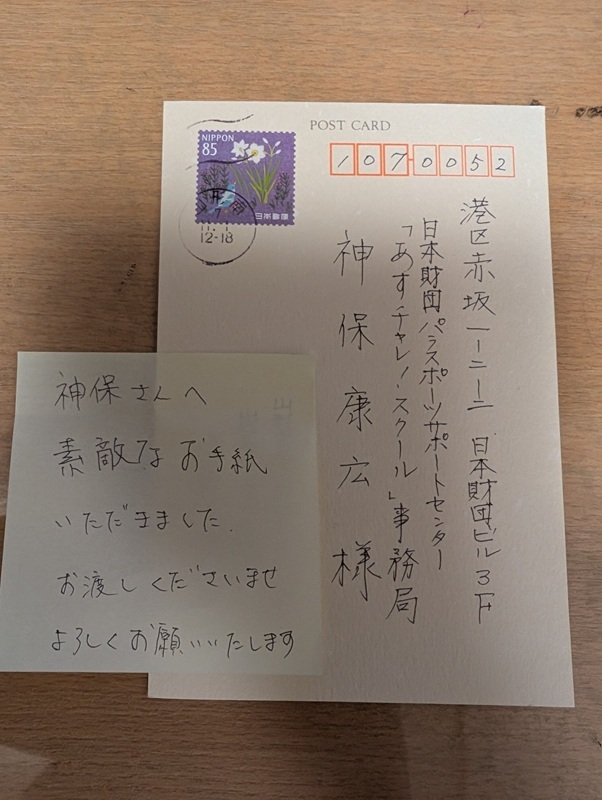 POST CARD
NIPPON
85
日本郵便
12-18
1070052
港区赤坂一ー二ー二 日本財団ビル3F
日本財団パラスポーツサポートセンター
「あすチャレ!スクール」事務局
神保康広 様
神保さんへ
素敵なお手紙
いただきました.
お渡しくださいませ
よろしくお願いいたします